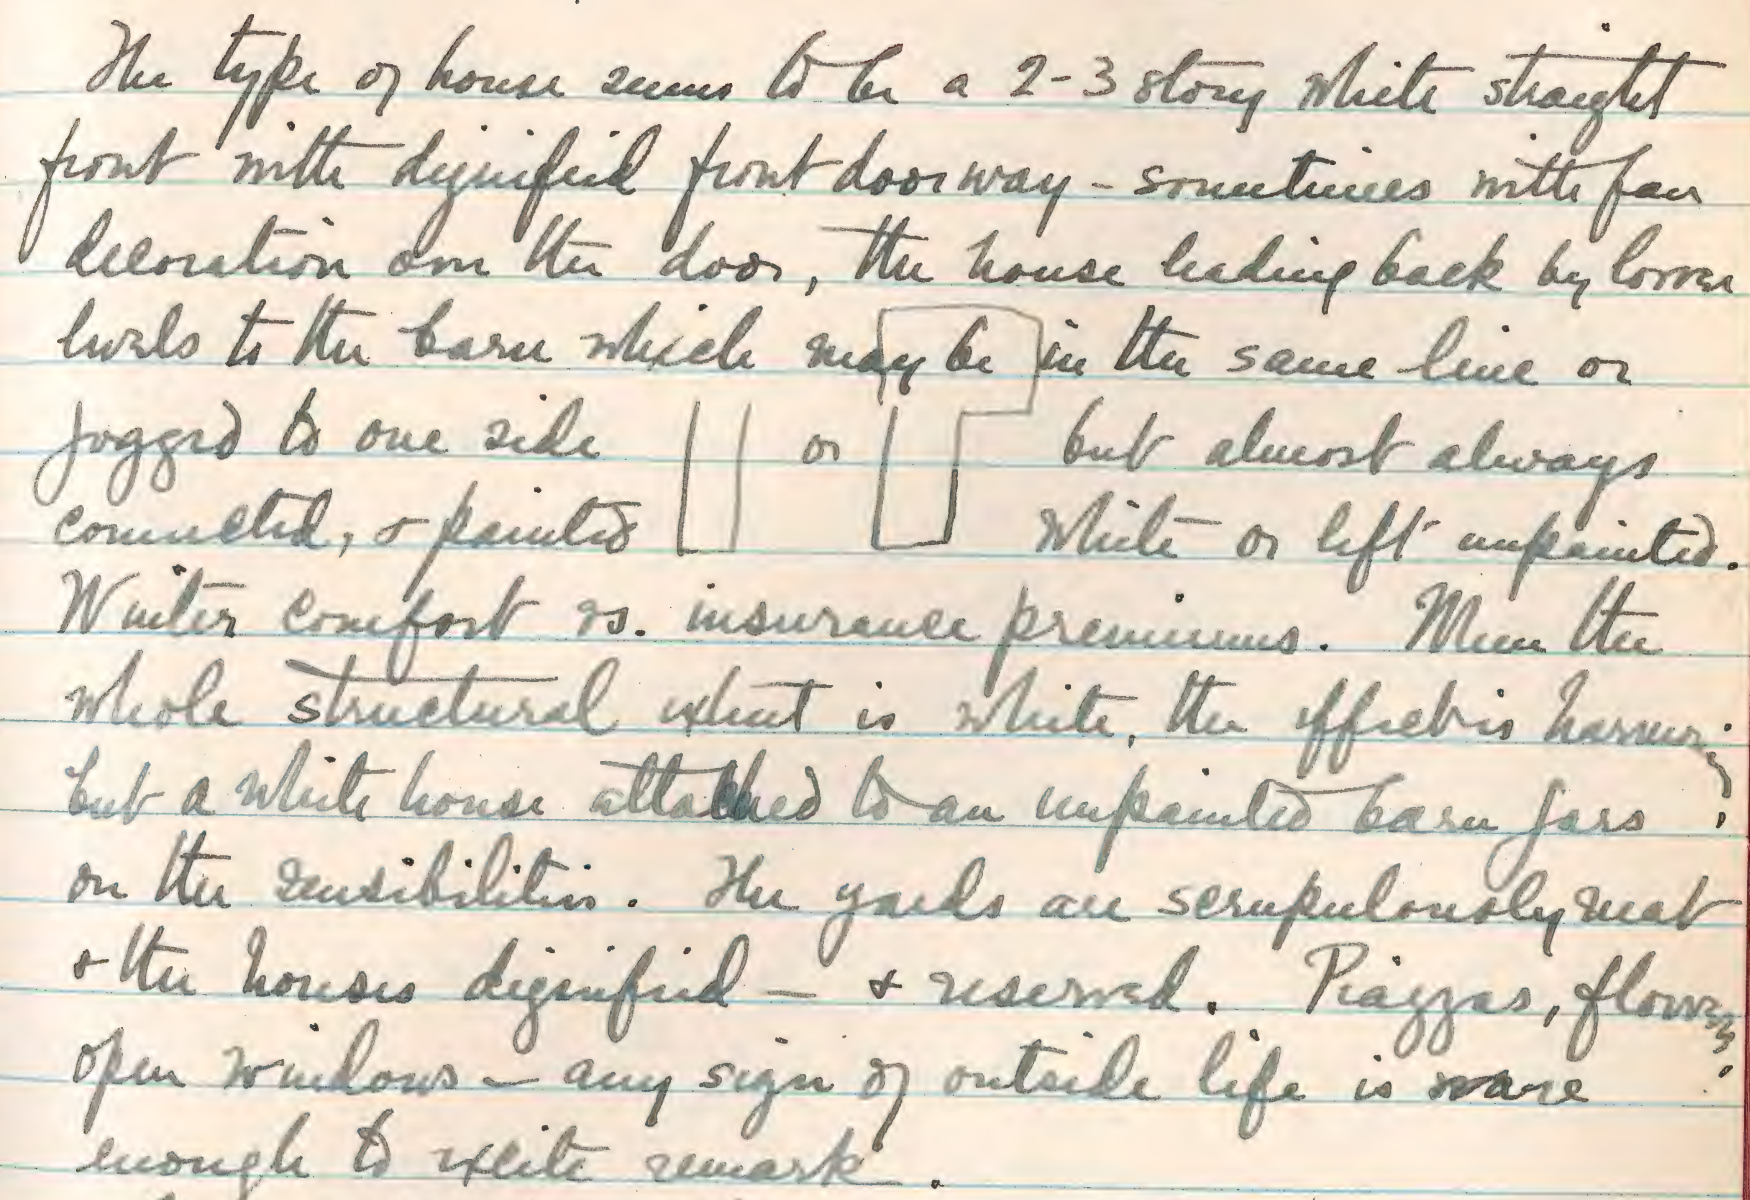 The type of house seems to be a 2-3 story white straight
front with dignified front doorway - sometimes with fan
decoration over the door, the house leading back by lower
levels to the barn which may be in the same line or
jogged to one side or but almost always
connected, & painted white or left unpainted.
Winter comfort vs. insurance premiums. When the
whole structural extent is white, the effect is
but a white house attached to an unpainted barn jars
on the sensibilities. The yards are scrupulously neat
& the houses dignified - & reserved. Piazzas, flowers,
open windows - any sign of outside life is rare
enough to excite remark.